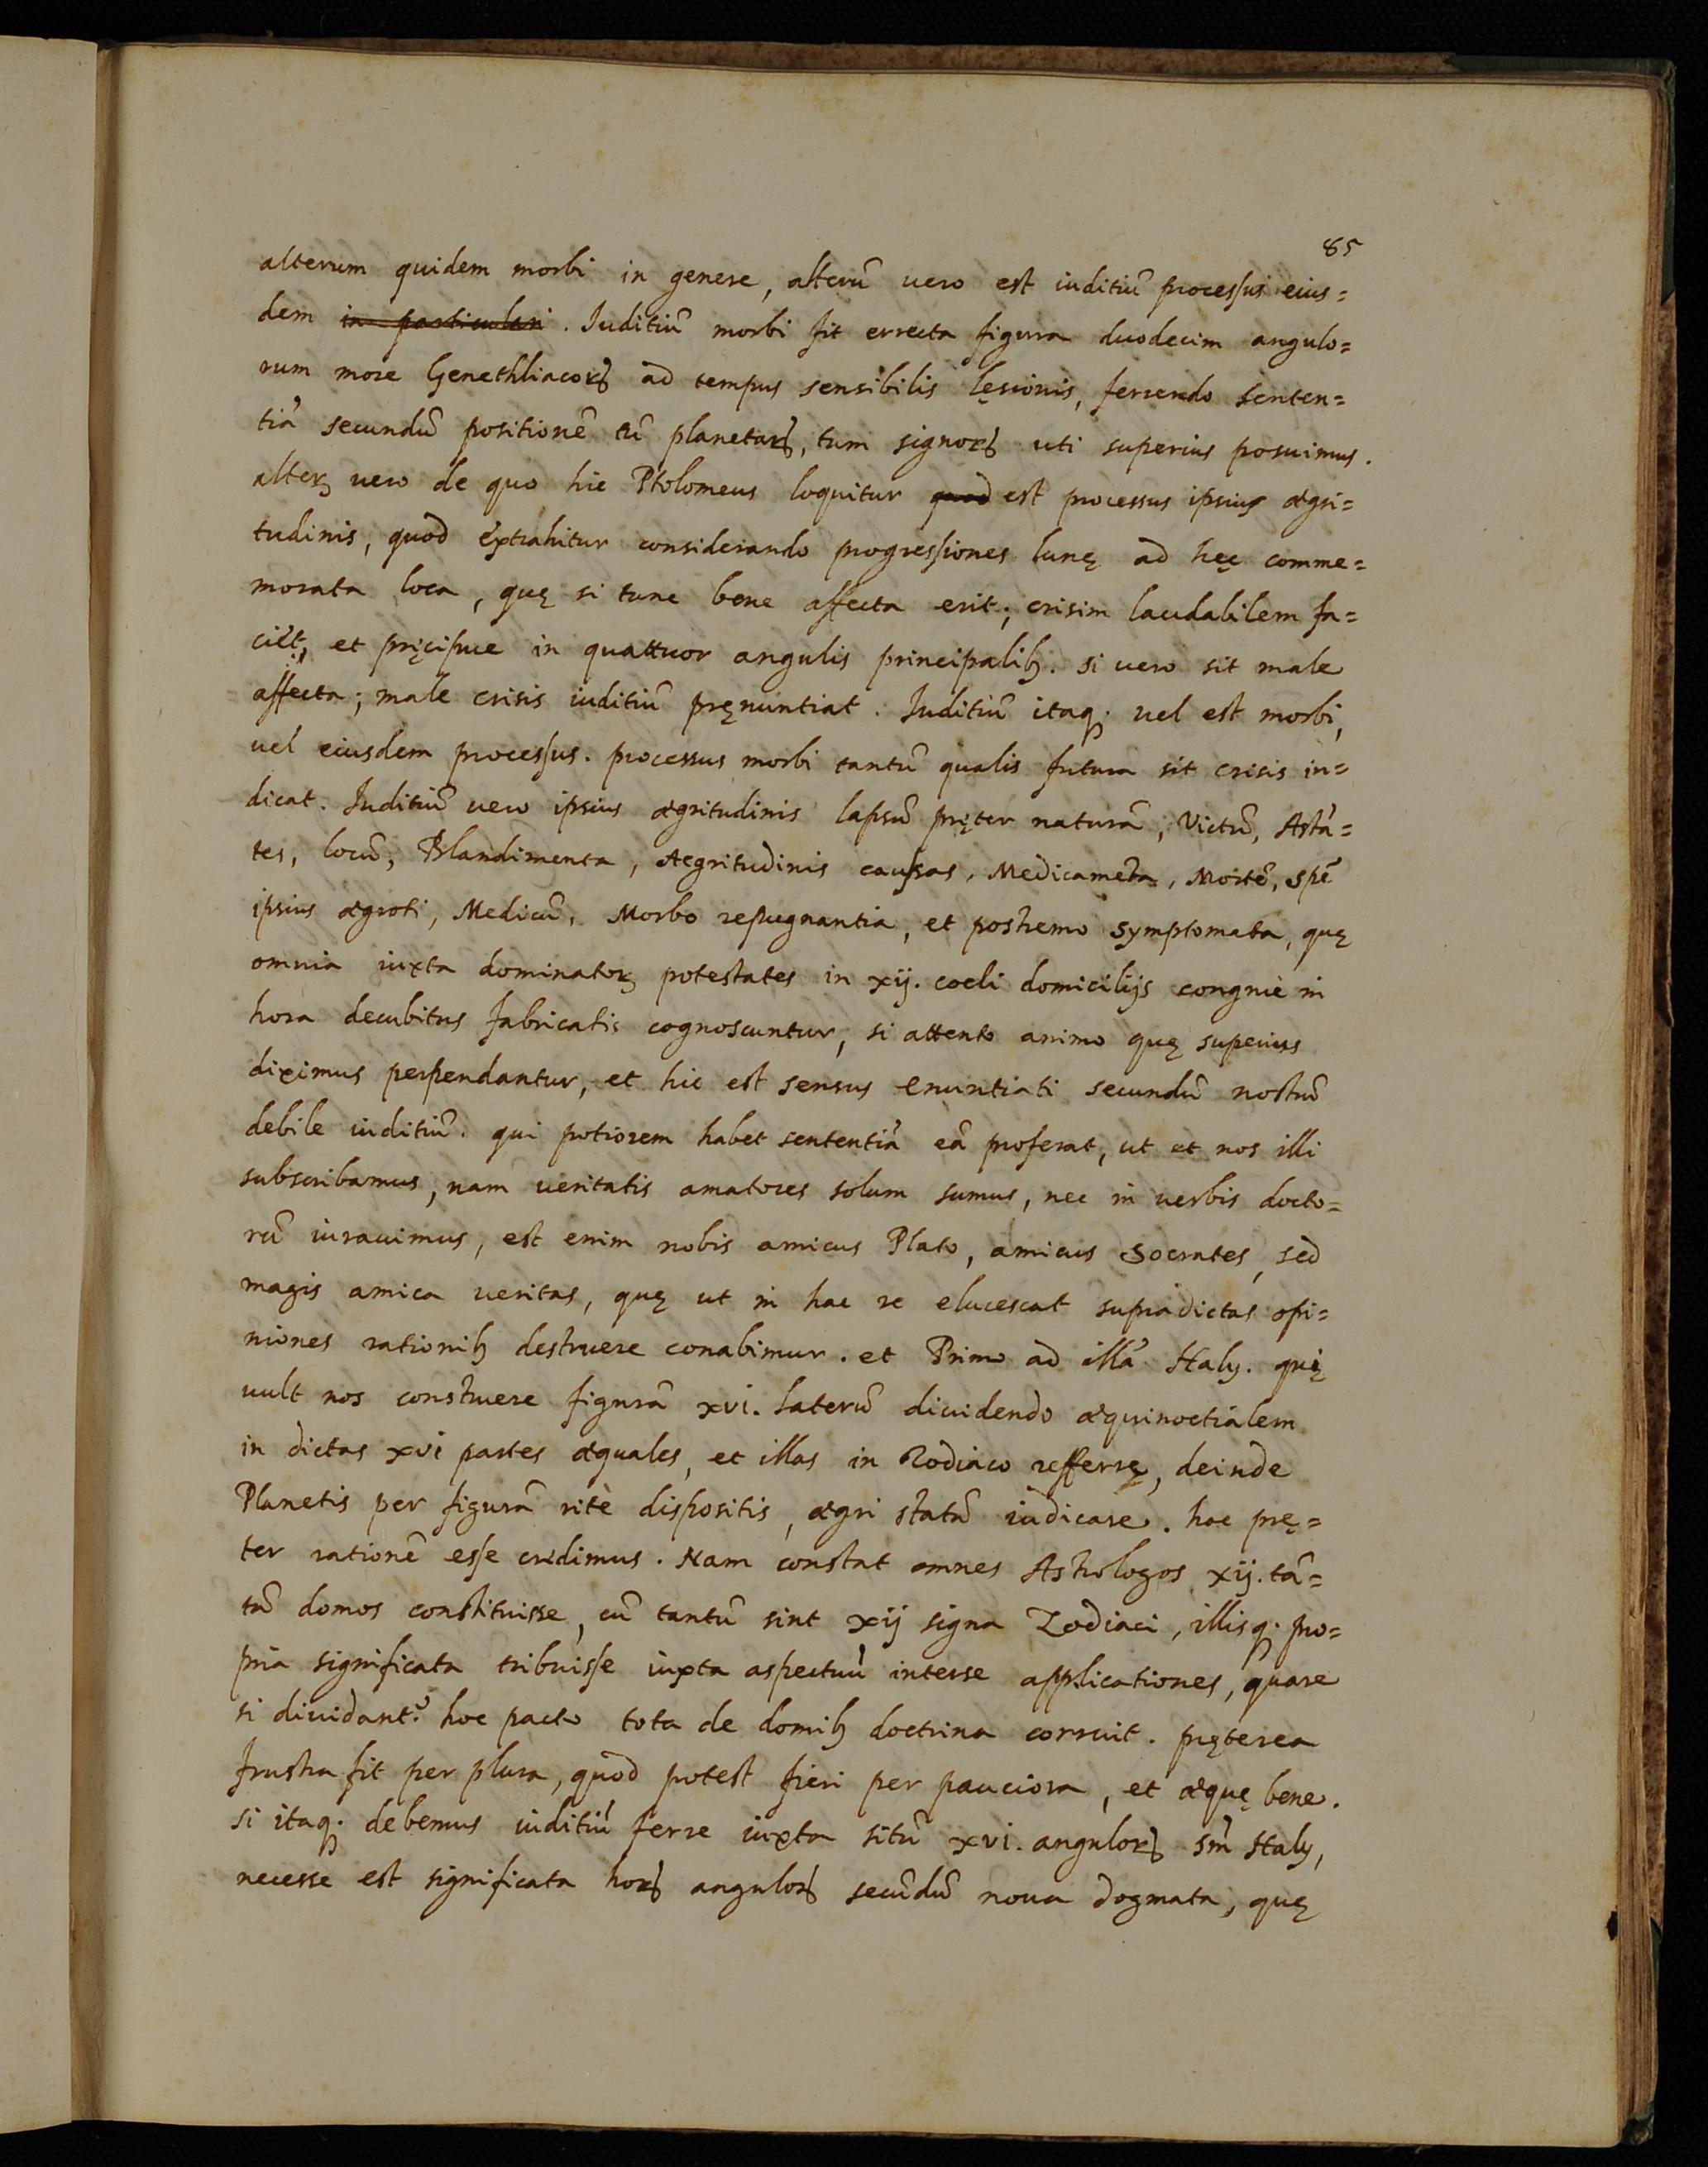 85
alterum quidem morbi in genere, alterū vero est iuditiū processus eius=
dem in particulari. Iuditiū morbi fit errecta figura duodecim angulo=
rum more Genethliacoꝝ ad tempus sensibilis lęsionis, ferrendo senten=
tiā secundū positionē tū planetaꝝ, tum signoꝝ uti superius posuimus.
alterꝫ uero de quo hic Ptolomeus loquitur quod est processus ipsius ægri=
tudinis, quod extrahitur considerando progressiones lunę ad hęc comme=
morata loca, quę si tunc bene affecta erit; crisim laudabilem fa=
ciet, et pręcipue in quattuor angulis principalibꝫ. si uero sit male
affecta; male crisis iuditiū pręnuntiat. Iuditiū itaqꝫ uel est morbi,
uel eiusdem processus. processus morbi tantū qualis futura sit crisis in=
dicat. Iuditiū uero ipsius ægritudinis lapsū pręter naturā, Victū, Astā=
tes, locū, Blandimenta, Aegritudinis caussas, Medicamēta, Mortē, spē
ipsius ægroti, Medicū, Morbo repugnantia, et postremo symptomata, quę
omnia iuxta dominatorꝫ potestates in xij. coeli domicilijs congruè in
hora decubitus fabricatis cognoscuntur, si attento animo quę superius
diximus perpendantur, et hic est sensus enuntiati secundū nostrū
debile iuditiū. qui potiorem habet sententiā eā proferat, ut et nos illi
subscribamus, nam ueritatis amatores solum sumus, nec in uerbis docto=
rū iurauimus, est enim nobis amicus Plato, amicus Socrates, sed
magis amica ueritas, quę ut in hac re elucescat supradictas opi=
niones rationibꝫ destruere conabimur. et Primo ad illā Haly. qui
uult nos construere figurā xvi. laterū diuidendo æquinoctialem
in dictas xvi partes æquales, et illas in Zodiaco refferre, deinde
Planetis per figurā ritè dispositis, ægri statū iudicare. hoc prę=
ter rationē esse credimus. Nam constat omnes Astrologos xij. tā=
tū domos constituisse, cū tantū sint xij signa Zodiaci, illisqꝫ pro=
pria significata tribuisse iuxta aspectuū interse applicationes, quare
si diuidantˀ hoc pacto tota de domibꝫ doctrina corruit. pręterea
frustra fit per plura, quod potest fieri per pauciora, et æquę bene.
si itaqꝫ debemus iuditiū ferre iuxta sitū xvi. anguloꝝ sm̄ Haly,
necesse est significata hoꝝ anguloꝝ secūdū noua dogmata, quę